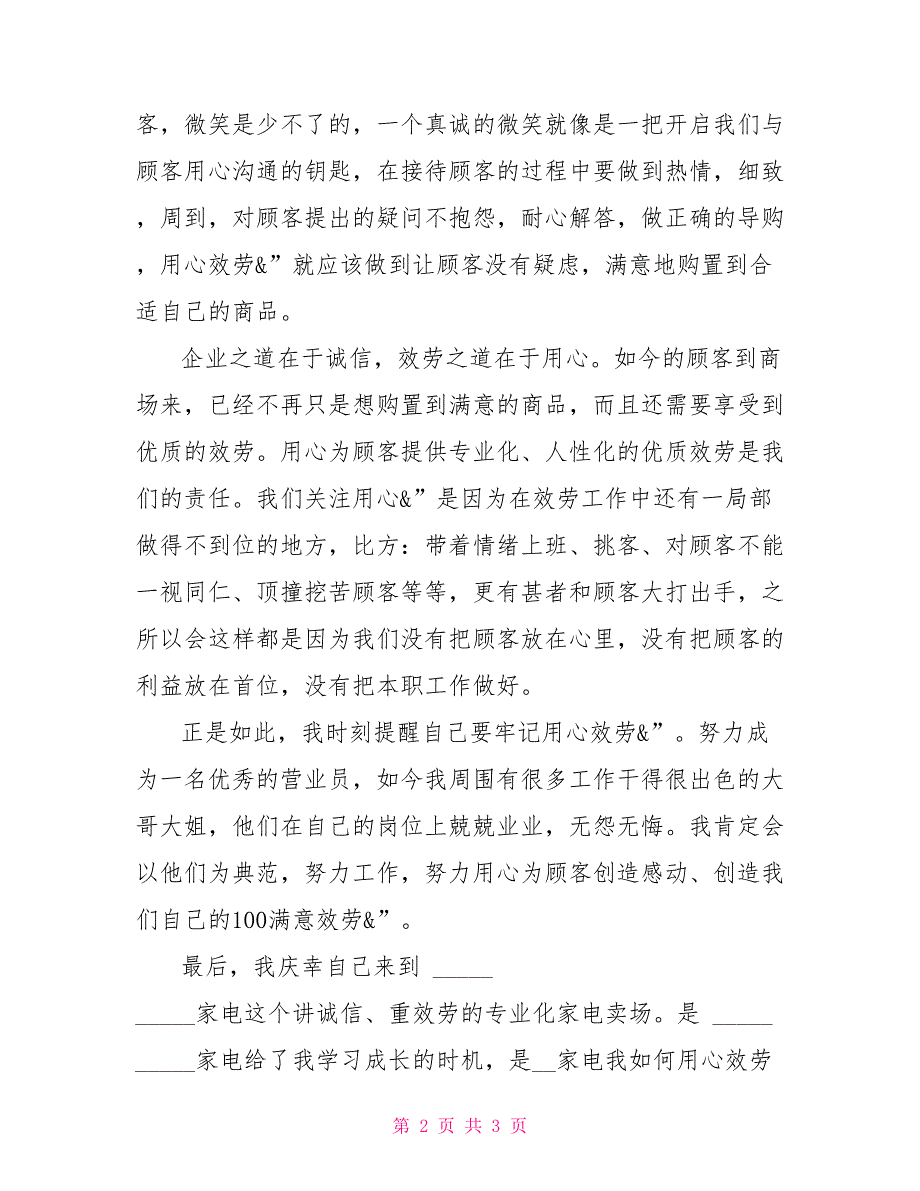 客，微笑是少不了的，一个真诚的微笑就像是一把开启我们与
顾客用心沟通的钥匙，在接待顾客的过程中要做到热情，细致
，周到，对顾客提出的疑问不抱怨，耐心解答，做正确的导购
，用心效劳&”就应该做到让顾客没有疑虑，满意地购置到合
适自己的商品。
企业之道在于诚信，效劳之道在于用心。如今的顾客到商
场来，已经不再只是想购置到满意的商品，而且还需要享受到
优质的效劳。用心为顾客提供专业化、人性化的优质效劳是我
们的责任。我们关注用心&”是因为在效劳工作中还有一局部
做得不到位的地方，比方：带着情绪上班、挑客、对顾客不能
一视同仁、顶撞挖苦顾客等等，更有甚者和顾客大打出手，之
所以会这样都是因为我们没有把顾客放在心里，没有把顾客的
利益放在首位，没有把本职工作做好。
正是如此，我时刻提醒自己要牢记用心效劳&”。努力成
为一名优秀的营业员，如今我周围有很多工作干得很出色的大
哥大姐，他们在自己的岗位上兢兢业业，无怨无悔。我肯定会
以他们为典范，努力工作，努力用心为顾客创造感动、创造我
们自己的100满意效劳&”。
最后，我庆幸自己来到 _____
_____家电这个讲诚信、重效劳的专业化家电卖场。是 _____
_____家电给了我学习成长的时机，是__家电我如何用心效劳
第 2 页 共 3 页